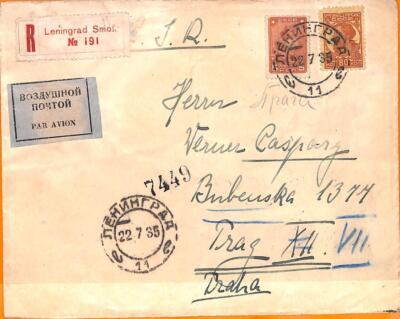 R
Leningrad Smol.
№ 191
J. R.
ВОЗДУШНОЙ
ПОЧТОЙ
PAR AVION
ЛЕНИНГРАД
22.7.35
11
80
Прага
Herrn
Verner Caspary
Bubenska 1377
Prag XII. VII
Praha
7449
ЛЕНИНГРАД
22.7.35
11